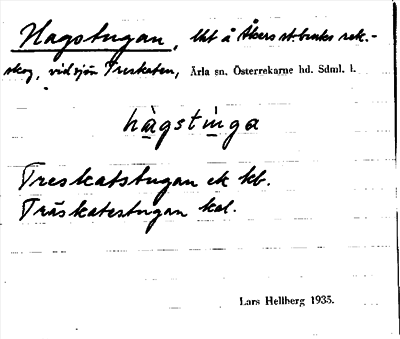 Hagstugan, lht å Åkers st.bruks rek.-
skog, vid sjön Treskaten, Ärla sn. Österrekarne hd. Sdml. l.
hàgstùnga
Treskatstugan ek kb.
Träskatestugan kal.
Lars Hellberg 1935.